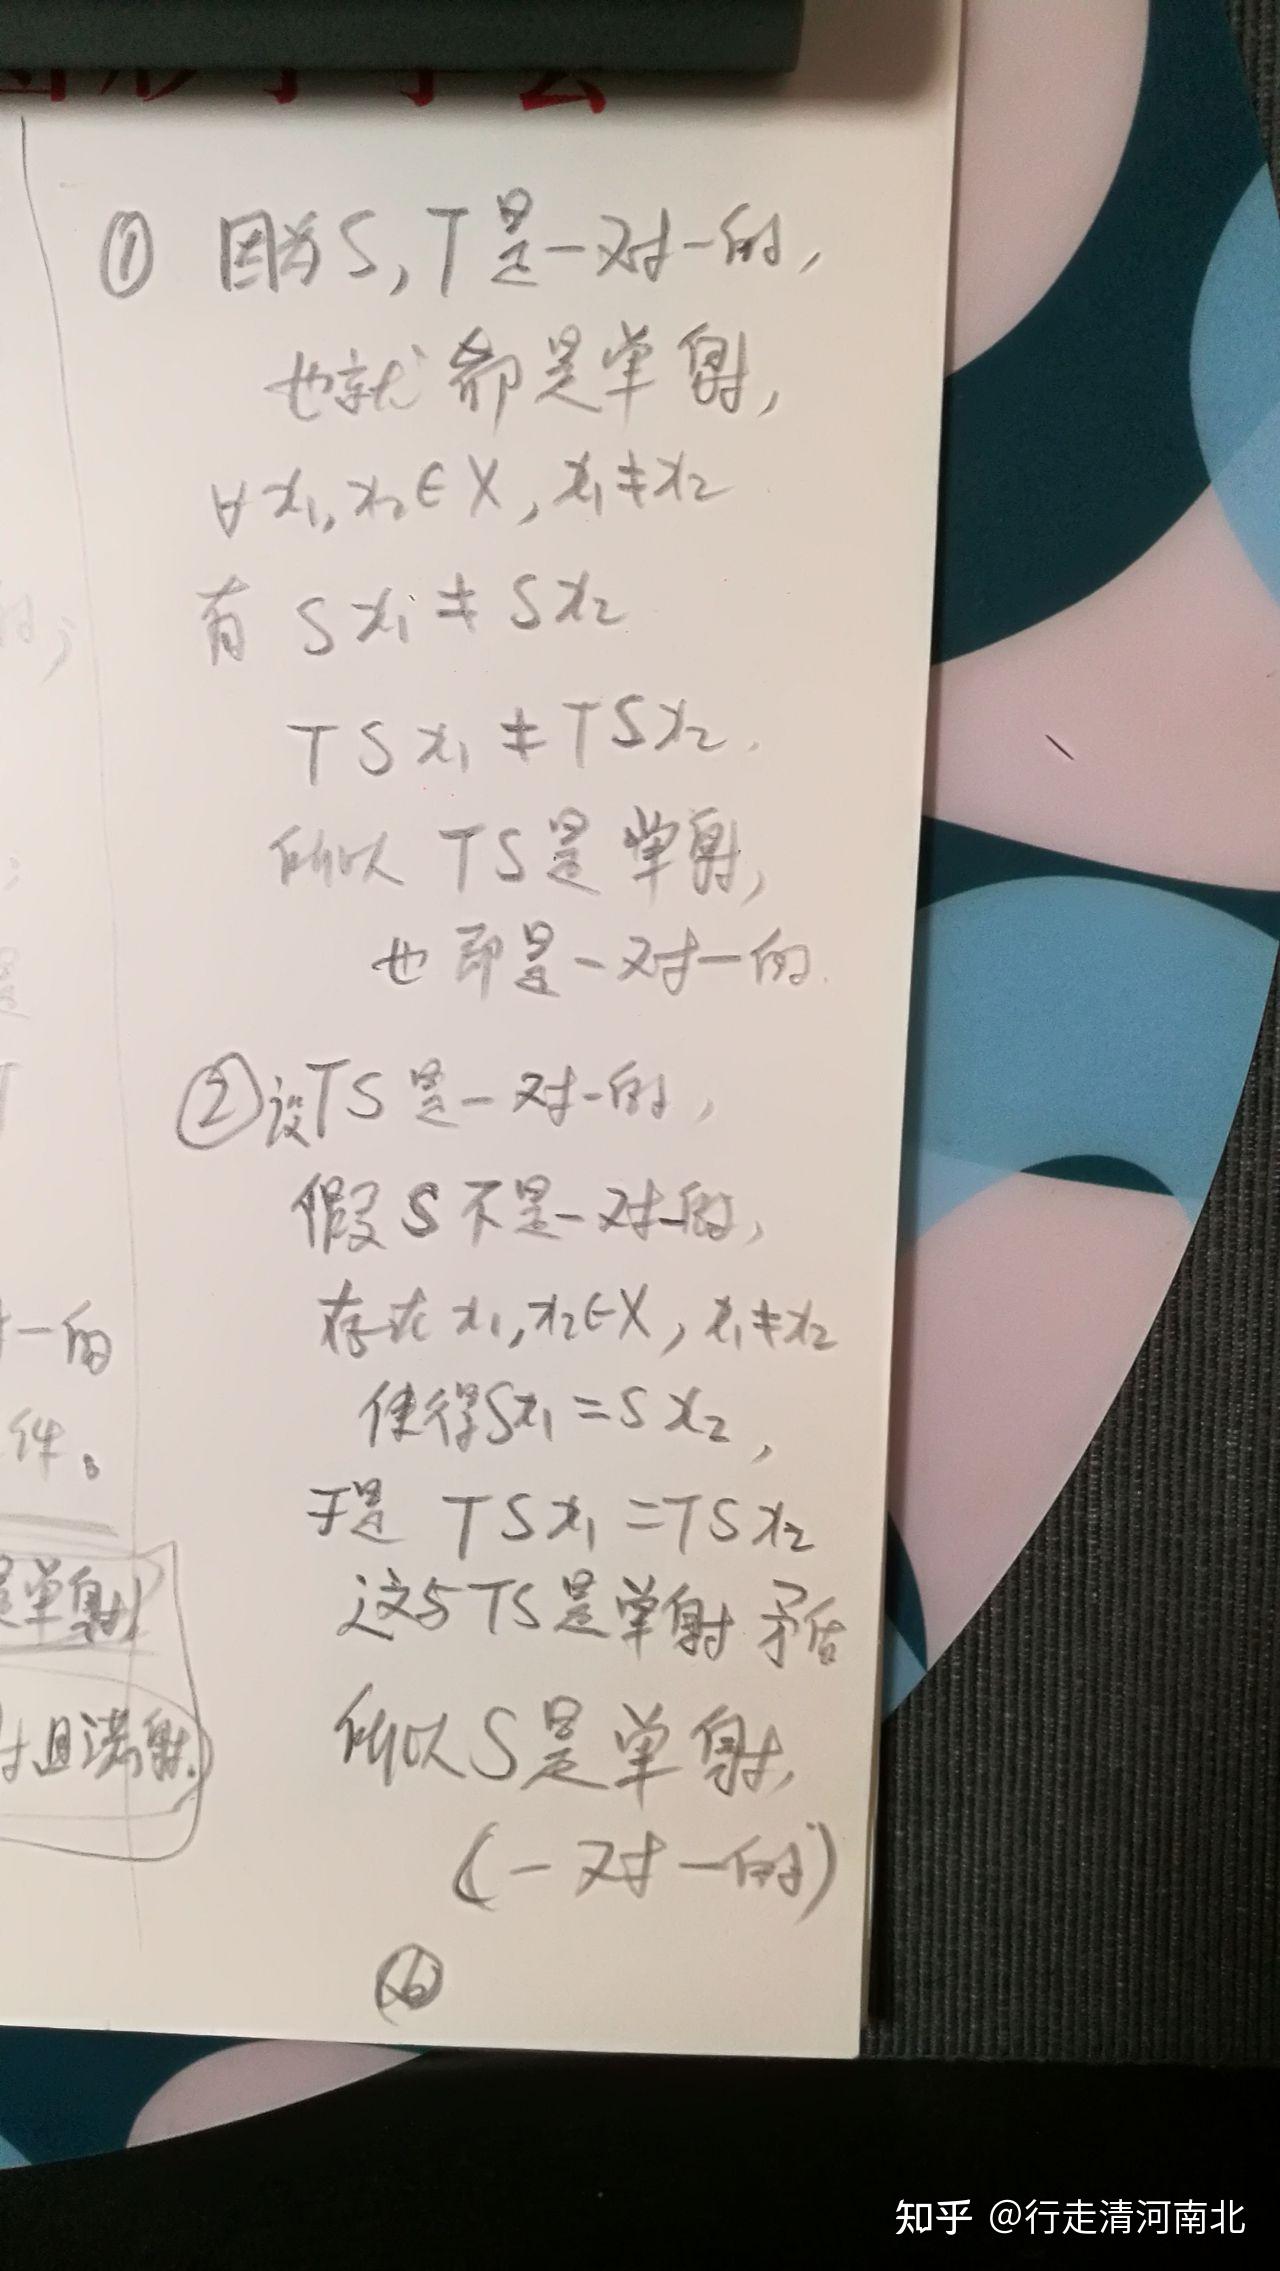 ① 因为S,T是一对一的,
也就都是单射,
∀x₁,x₂∈X,x₁≠x₂
有 Sx₁≠Sx₂
TSx₁≠TSx₂.
所以 TS是单射,
也即是一对一的.
②设TS是一对一的,
假设S不是一对一的,
存在x₁,x₂∈X,x₁≠x₂
使得Sx₁=Sx₂,
于是 TSx₁=TSx₂
这与TS是单射矛盾
所以S是单射,
(一对一的)
一的
件。
是单射
且满射.
知乎 @行走清河南北